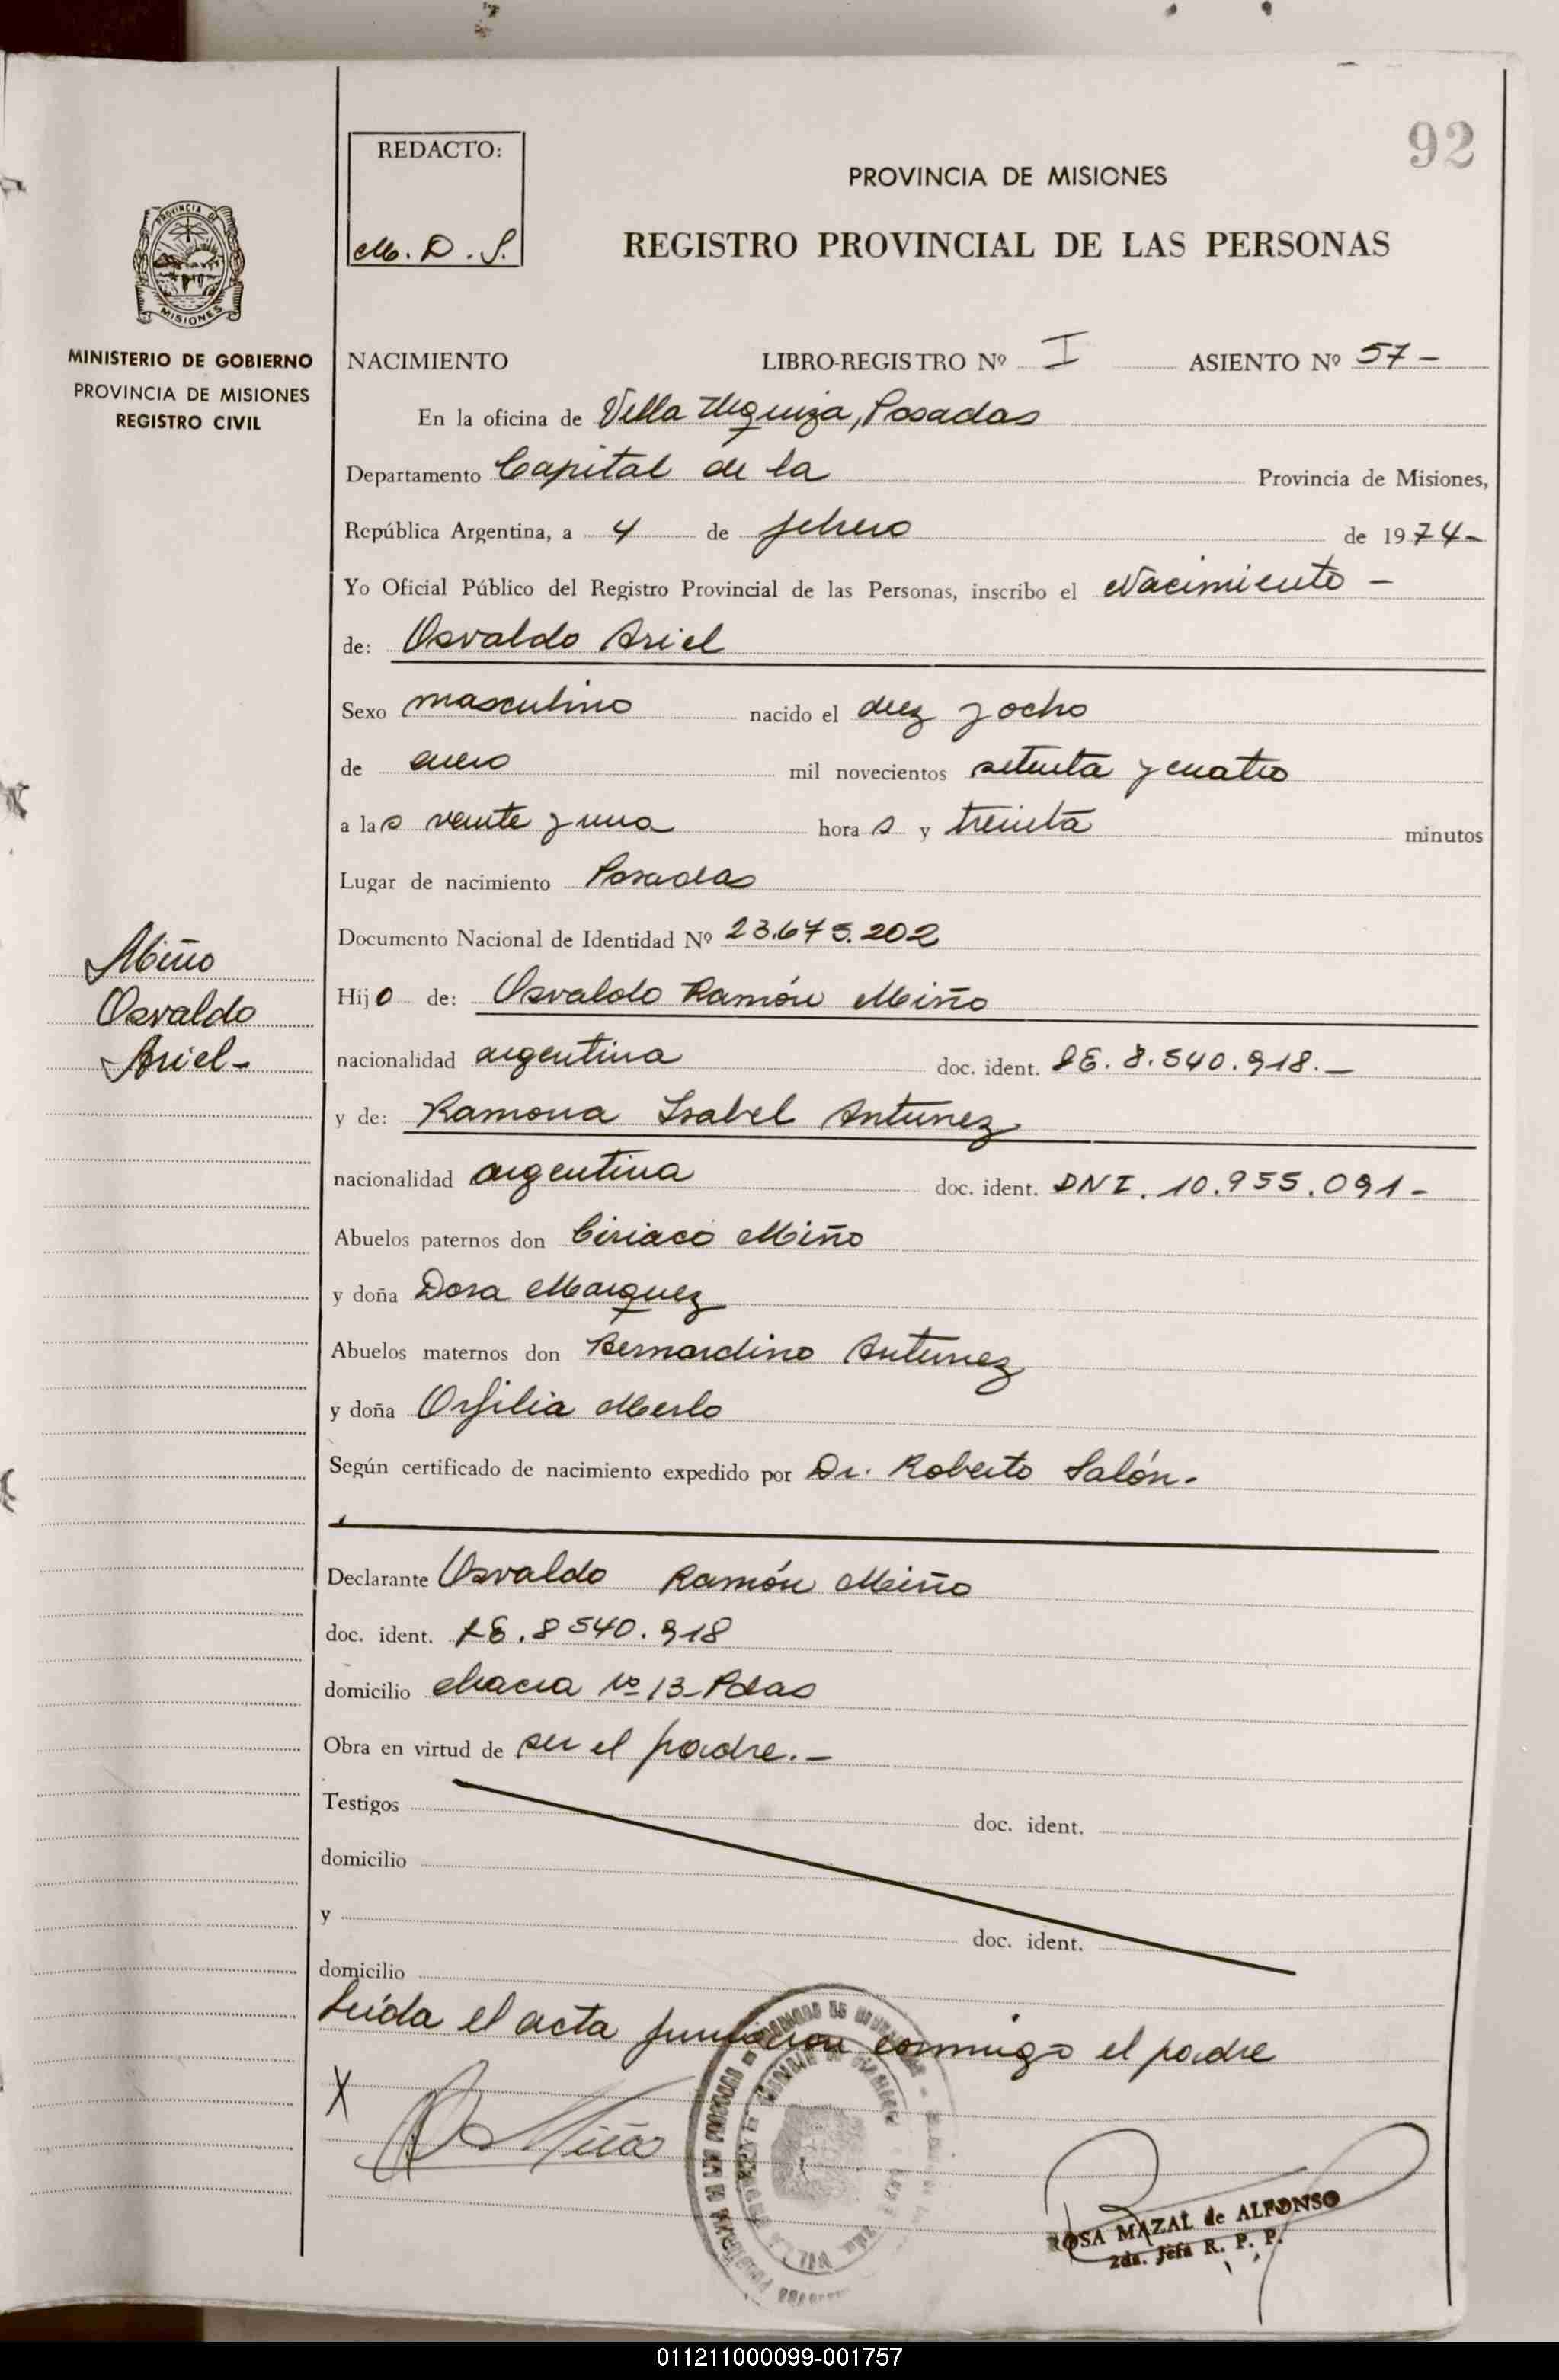 92
REDACTO:
M. D. S.
PROVINCIA DE MISIONES
REGISTRO PROVINCIAL DE LAS PERSONAS
PROVINCIA DE
MISIONES
MINISTERIO DE GOBIERNO
PROVINCIA DE MISIONES
REGISTRO CIVIL
NACIMIENTO LIBRO-REGISTRO Nº I ASIENTO Nº 57-
En la oficina de Villa Urquiza, Posadas
Departamento Capital de la Provincia de Misiones,
República Argentina, a 4 de febrero de 1974-
Yo Oficial Público del Registro Provincial de las Personas, inscribo el Nacimiento -
de: Osvaldo Ariel
Sexo masculino nacido el diez y ocho
de enero mil novecientos setenta y cuatro
a las veinte y una horas y treinta minutos
Lugar de nacimiento Posadas
Documento Nacional de Identidad Nº 23.675.202
Miño
Osvaldo
Ariel-
Hijo de: Osvaldo Ramón Miño
nacionalidad argentina doc. ident. LE. 8.540.918.-
y de: Ramona Isabel Antunez
nacionalidad argentina doc. ident. DNI. 10.955.091-
Abuelos paternos don Ciriaco Miño
y doña Dora Marquez
Abuelos maternos don Bernardino Antunez
y doña Orfilia Merlo
Según certificado de nacimiento expedido por Dr. Roberto Salón.
Declarante Osvaldo Ramón Miño
doc. ident. LE. 8540.918
domicilio chacra Nº 13-Pdas
Obra en virtud de ser el padre.-
Testigos doc. ident.
domicilio
y doc. ident.
domicilio
Leída el acta firmaron conmigo el padre
X
O Miño
ROSA MAZAL de ALFONSO
2da. Jefa R. P. P.
011211000099-001757